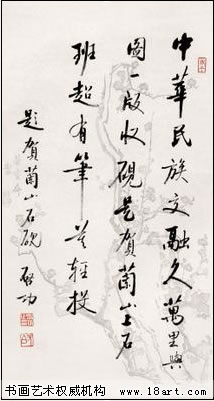 中華民族交融久萬里輿
圖一版收硯是賀蘭山上石
班超有筆莫輕投
題賀蘭山石硯 啓功
书画艺术权威机构 www.18art.com